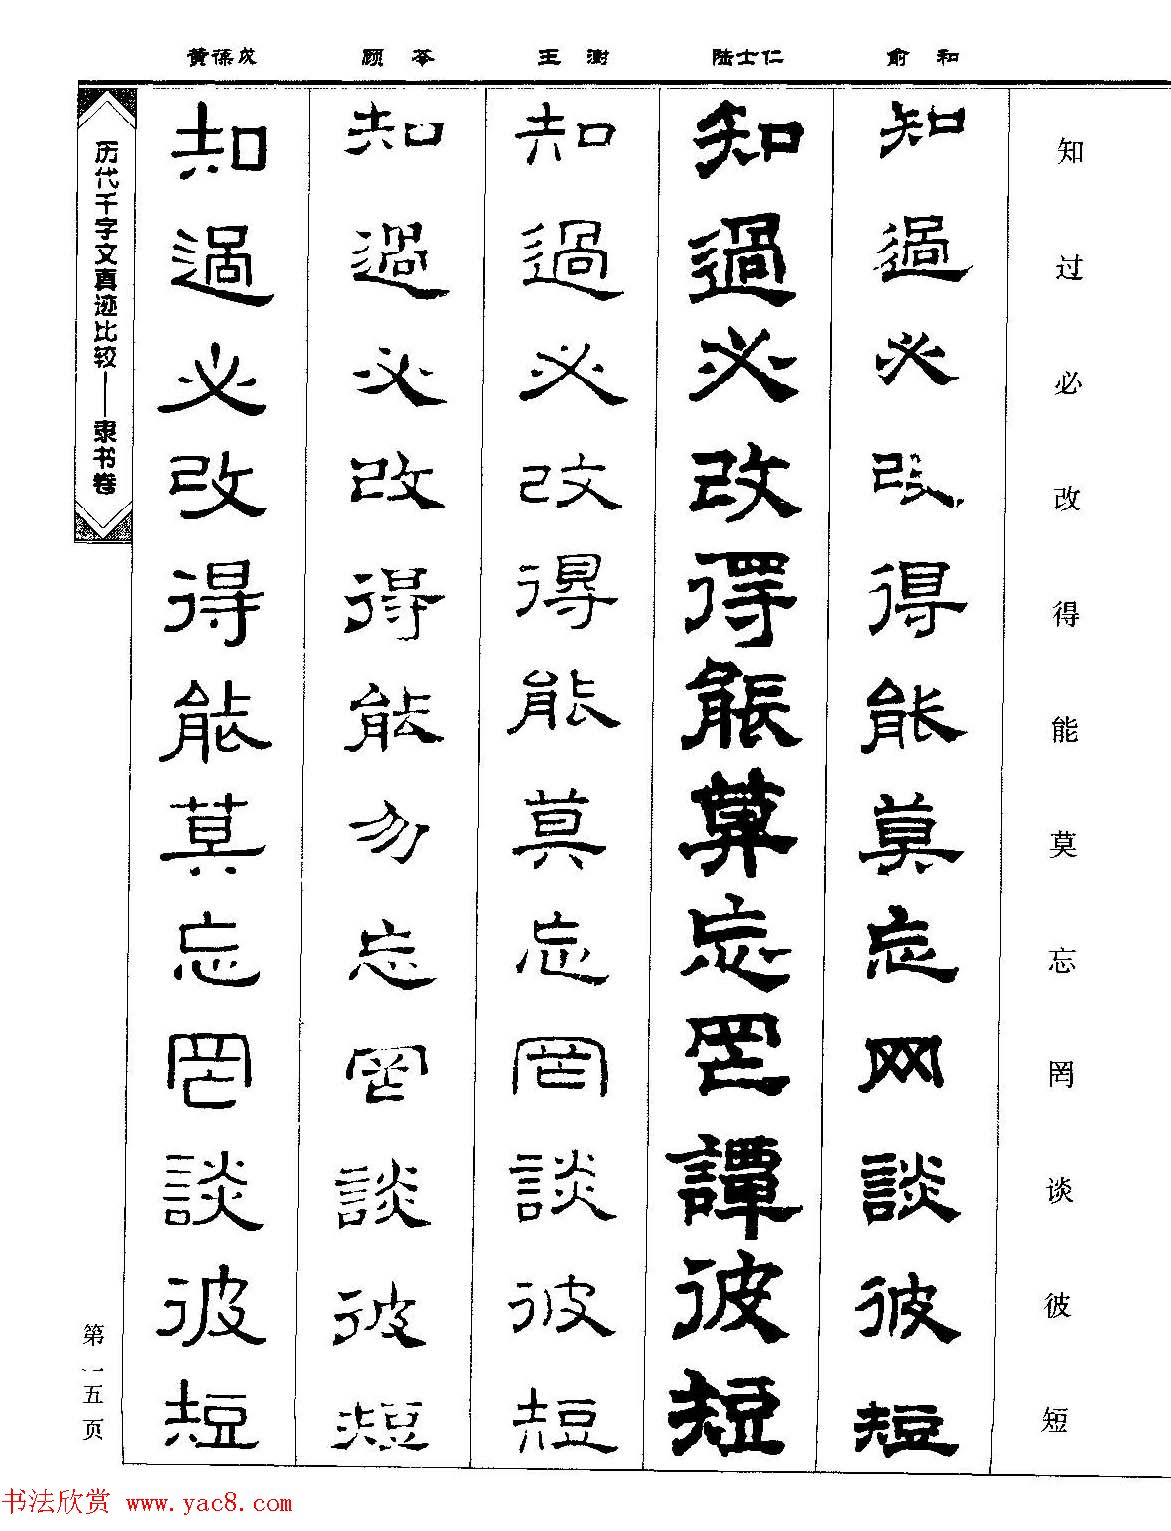 黄葆戉 顾苓 王澍 陆士仁 俞和
知过必改得能莫忘罔谈彼短
知過必改得能莫忘罔談彼短
知過必改得能莫忘罔談彼短
知過必改得能莫忘罔談彼短
知過必改得能勿忘罔談彼短
知過必改得能莫忘罔談彼短
历代千字文真迹比较——隶书卷
第一五页
书法欣赏 www.yac8.com